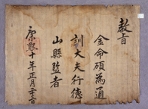 教旨
金命碩為通
訓大夫行德
山縣監者
康熙十年正月